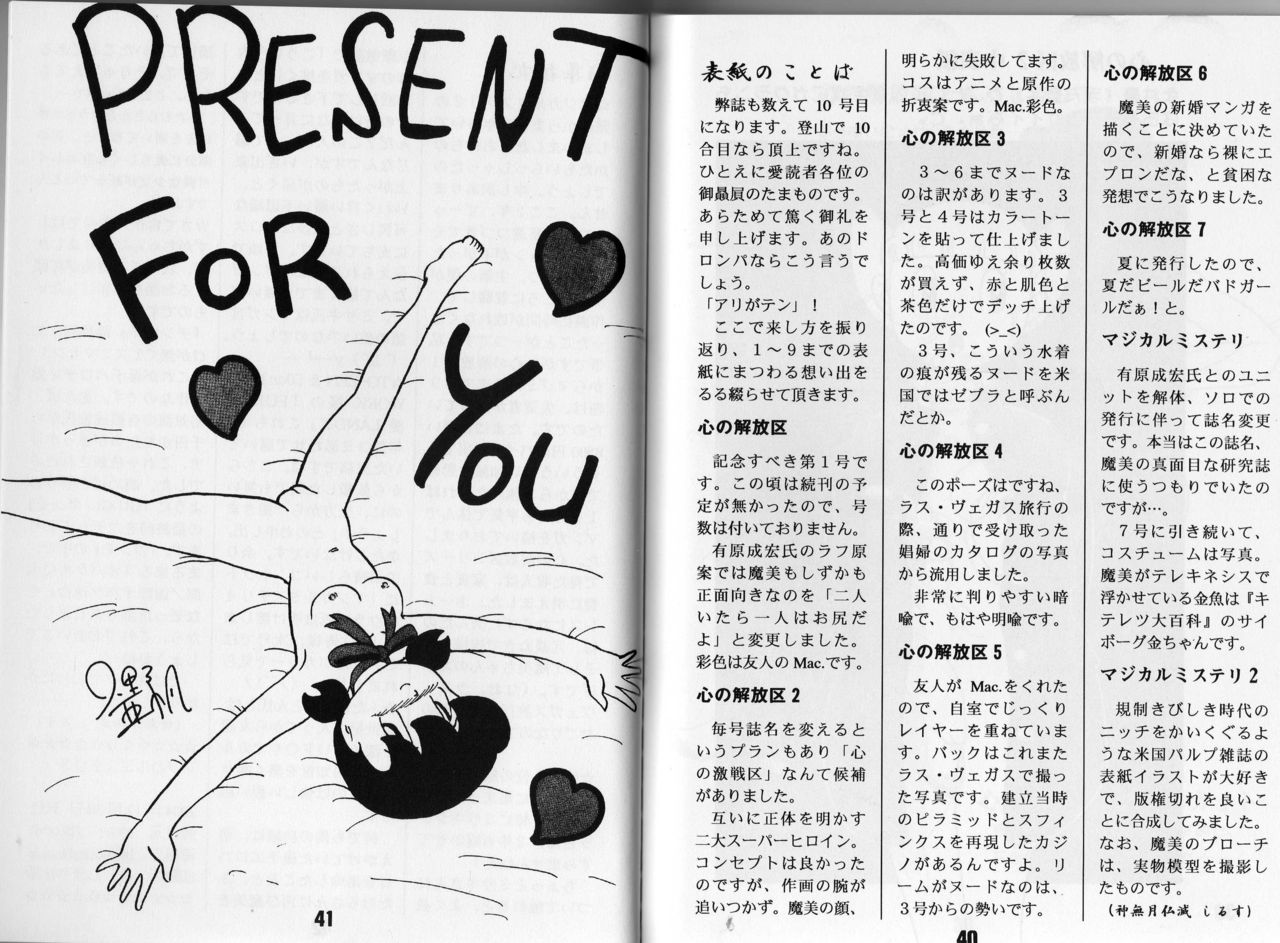 PRESENT
FOR
You
41
表紙のことば
　弊誌も数えて 10 号目
になります。登山で 10
合目なら頂上ですね。
ひとえに愛読者各位の
御贔屓のたまものです。
あらためて篤く御礼を
申し上げます。あのド
ロンパならこう言うで
しょう。
「アリがテン」！
　ここで来し方を振り
返り、１～９までの表
紙にまつわる想い出を
るる綴らせて頂きます。
心の解放区
　記念すべき第１号で
す。この頃は続刊の予
定が無かったので、号
数は付いておりません。
　有原成宏氏のラフ原
案では魔美もしずかも
正面向きなのを「二人
いたら一人はお尻だ
よ」と変更しました。
彩色は友人の Mac.です。
心の解放区 2
　毎号誌名を変えると
いうプランもあり「心
の激戦区」なんて候補
がありました。
　互いに正体を明かす
二大スーパーヒロイン。
コンセプトは良かった
のですが、作画の腕が
追いつかず。魔美の顔、
明らかに失敗してます。
コスはアニメと原作の
折衷案です。Mac.彩色。
心の解放区 3
　３～６までヌードな
のは訳があります。３
号と４号はカラートー
ンを貼って仕上げまし
た。高価ゆえ余り枚数
が買えず、赤と肌色と
茶色だけでデッチ上げ
たのです。 (>_<)
　３号、こういう水着
の痕が残るヌードを米
国ではゼブラと呼ぶん
だとか。
心の解放区 4
　このポーズはですね、
ラス・ヴェガス旅行の
際、通りで受け取った
娼婦のカタログの写真
から流用しました。
　非常に判りやすい暗
喩で、もはや明喩です。
心の解放区 5
　友人が Mac.をくれた
ので、自室でじっくり
レイヤーを重ねていま
す。バックはこれまた
ラス・ヴェガスで撮っ
た写真です。建立当時
のピラミッドとスフィ
ンクスを再現したカジ
ノがあるんですよ。リ
ームがヌードなのは、
３号からの勢いです。
心の解放区 6
　魔美の新婚マンガを
描くことに決めていた
ので、新婚なら裸にエ
プロンだな、と貧困な
発想でこうなりました。
心の解放区 7
　夏に発行したので、
夏だビールだバドガー
ルだぁ！と。
マジカルミステリ
　有原成宏氏とのユニ
ットを解体、ソロでの
発行に伴って誌名変更
です。本当はこの誌名、
魔美の真面目な研究誌
に使うつもりでいたの
ですが…。
　７号に引き続いて、
コスチュームは写真。
魔美がテレキネシスで
浮かせている金魚は『キ
テレツ大百科』のサイ
ボーグ金ちゃんです。
マジカルミステリ 2
　規制きびしき時代の
ニッチをかいくぐるよ
うな米国パルプ雑誌の
表紙イラストが大好き
で、版権切れを良いこ
とに合成してみました。
なお、魔美のブローチ
は、実物模型を撮影し
たものです。
（神無月仏滅 しるす）
40